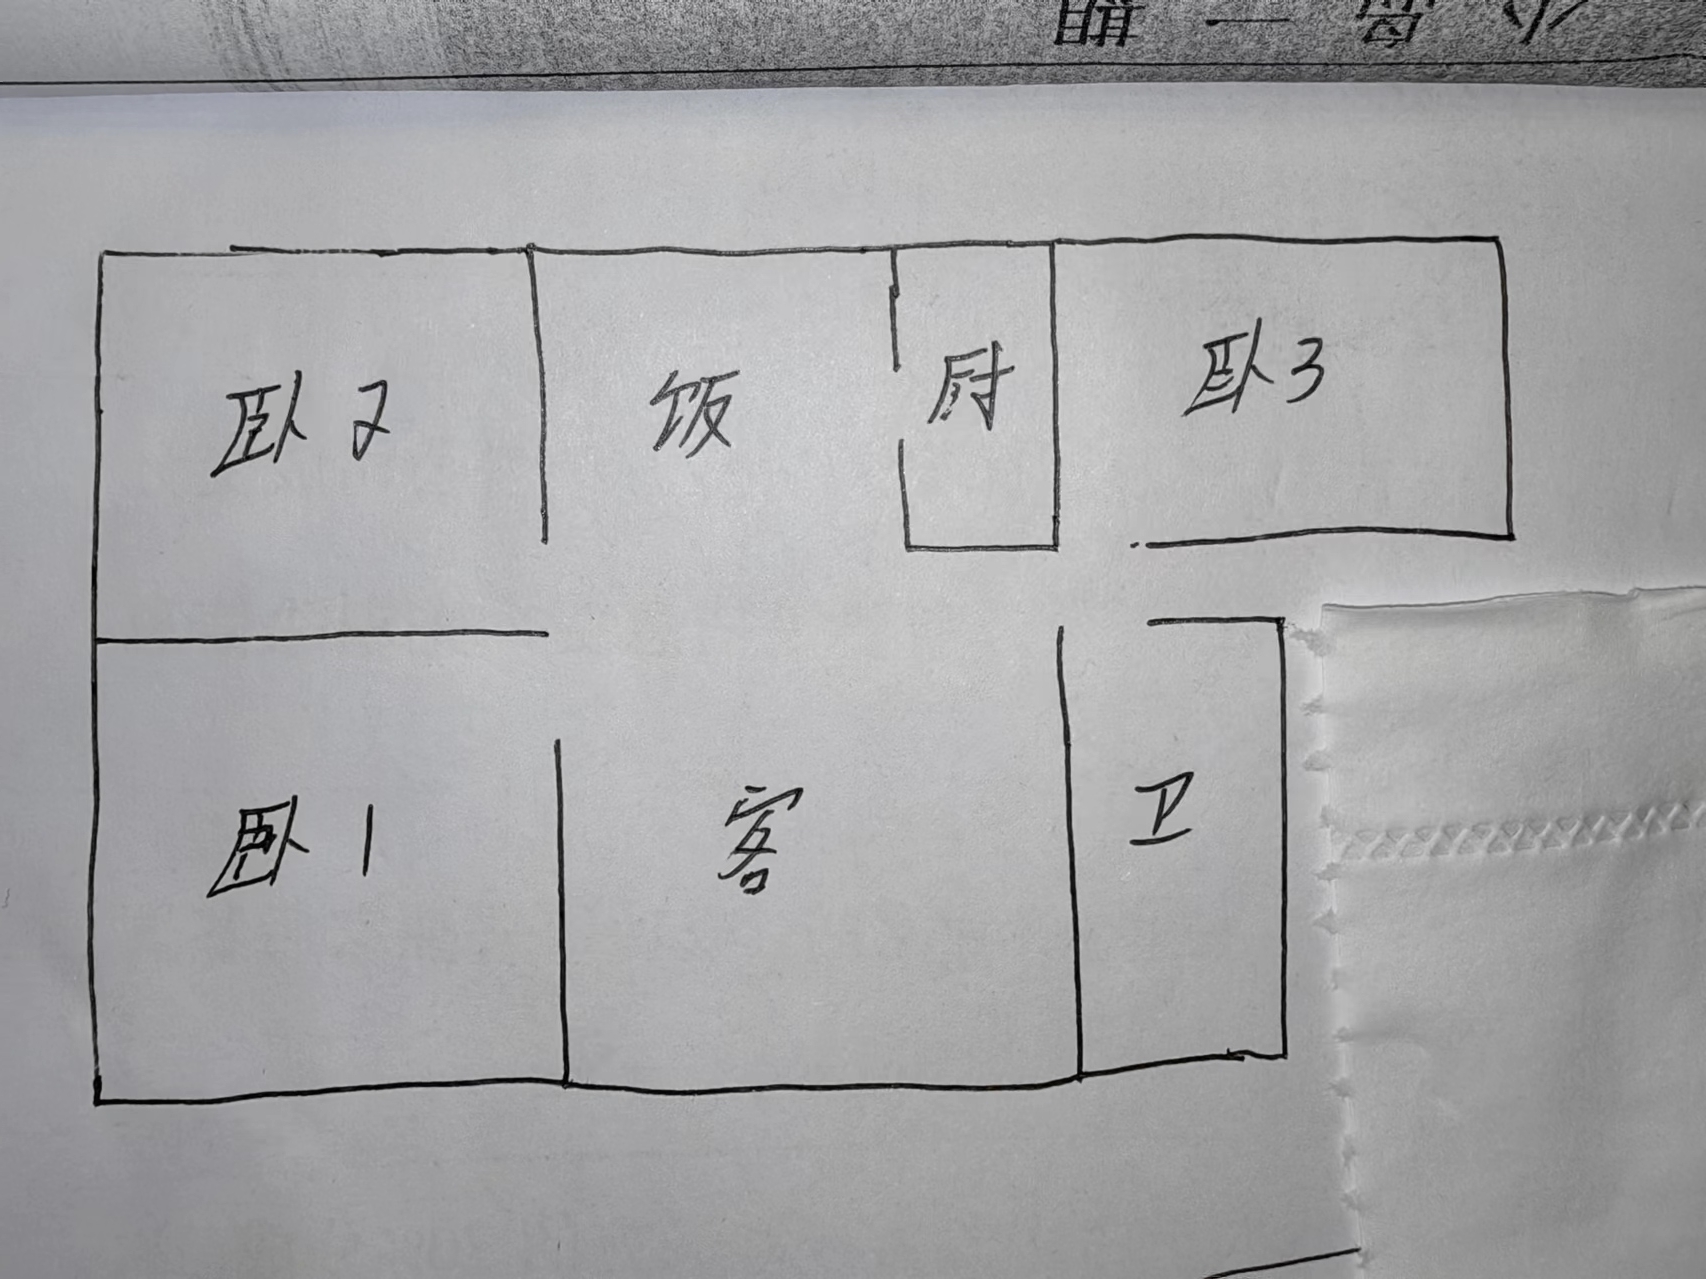 卧2 饭 厨 卧3
卧1 客 卫